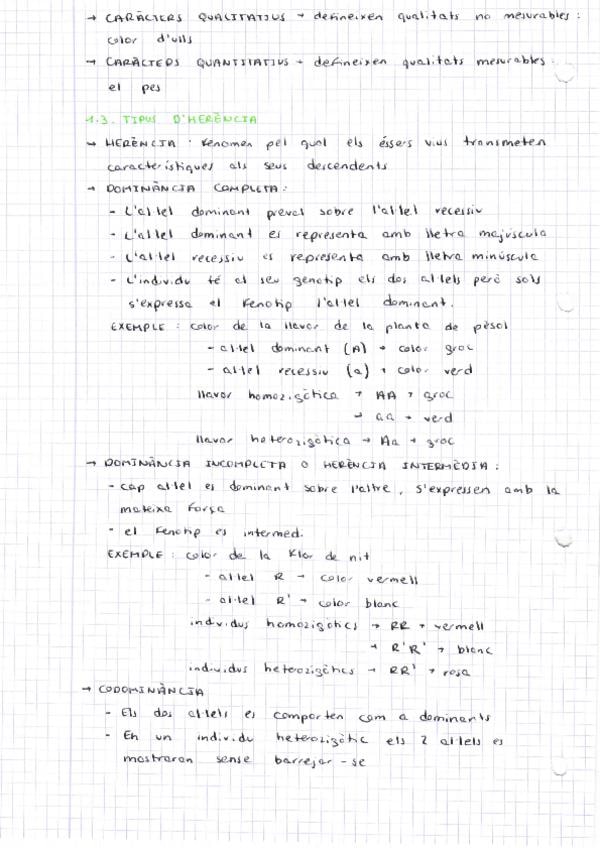 → CARÀCTERS QUALITATIUS → defineixen qualitats no mesurables :
color d'ulls
→ CARÀCTERS QUANTITATIUS → defineixen qualitats mesurables :
el pes
1.3. TIPUS D'HERÈNCIA
→ HERÈNCIA : fenomen pel qual els éssers vius transmeten
característiques als seus descendents
→ DOMINÀNCIA COMPLETA :
- L'al·lel dominant preval sobre l'al·lel recessiu
- L'al·lel dominant es representa amb lletra majúscula
- L'al·lel recessiu es representa amb lletra minúscula
- L'individu té al seu genotip els dos al·lels però sols
s'expressa el fenotip l'al·lel dominant.
EXEMPLE : color de la llavor de la planta de pèsol
- al·lel dominant (A) → color groc
- al·lel recessiu (a) → color verd
llavor homozigòtica → AA → groc
→ aa → verd
llavor heterozigòtica → Aa → groc
→ DOMINÀNCIA INCOMPLETA O HERÈNCIA INTERMÈDIA :
- cap al·lel es dominant sobre l'altre, s'expressen amb la
mateixa força
- el fenotip es intermed.
EXEMPLE : color de la flor de nit
- al·lel R → color vermell
- al·lel R' → color blanc
individus homozigòtics → RR → vermell
→ R'R' → blanc
individus heterozigòtics → RR' → rosa
→ CODOMINÀNCIA
- Els dos al·lels es comporten com a dominants
- En un individu heterozigòtic els 2 al·lels es
mostraran sense barrejar-se